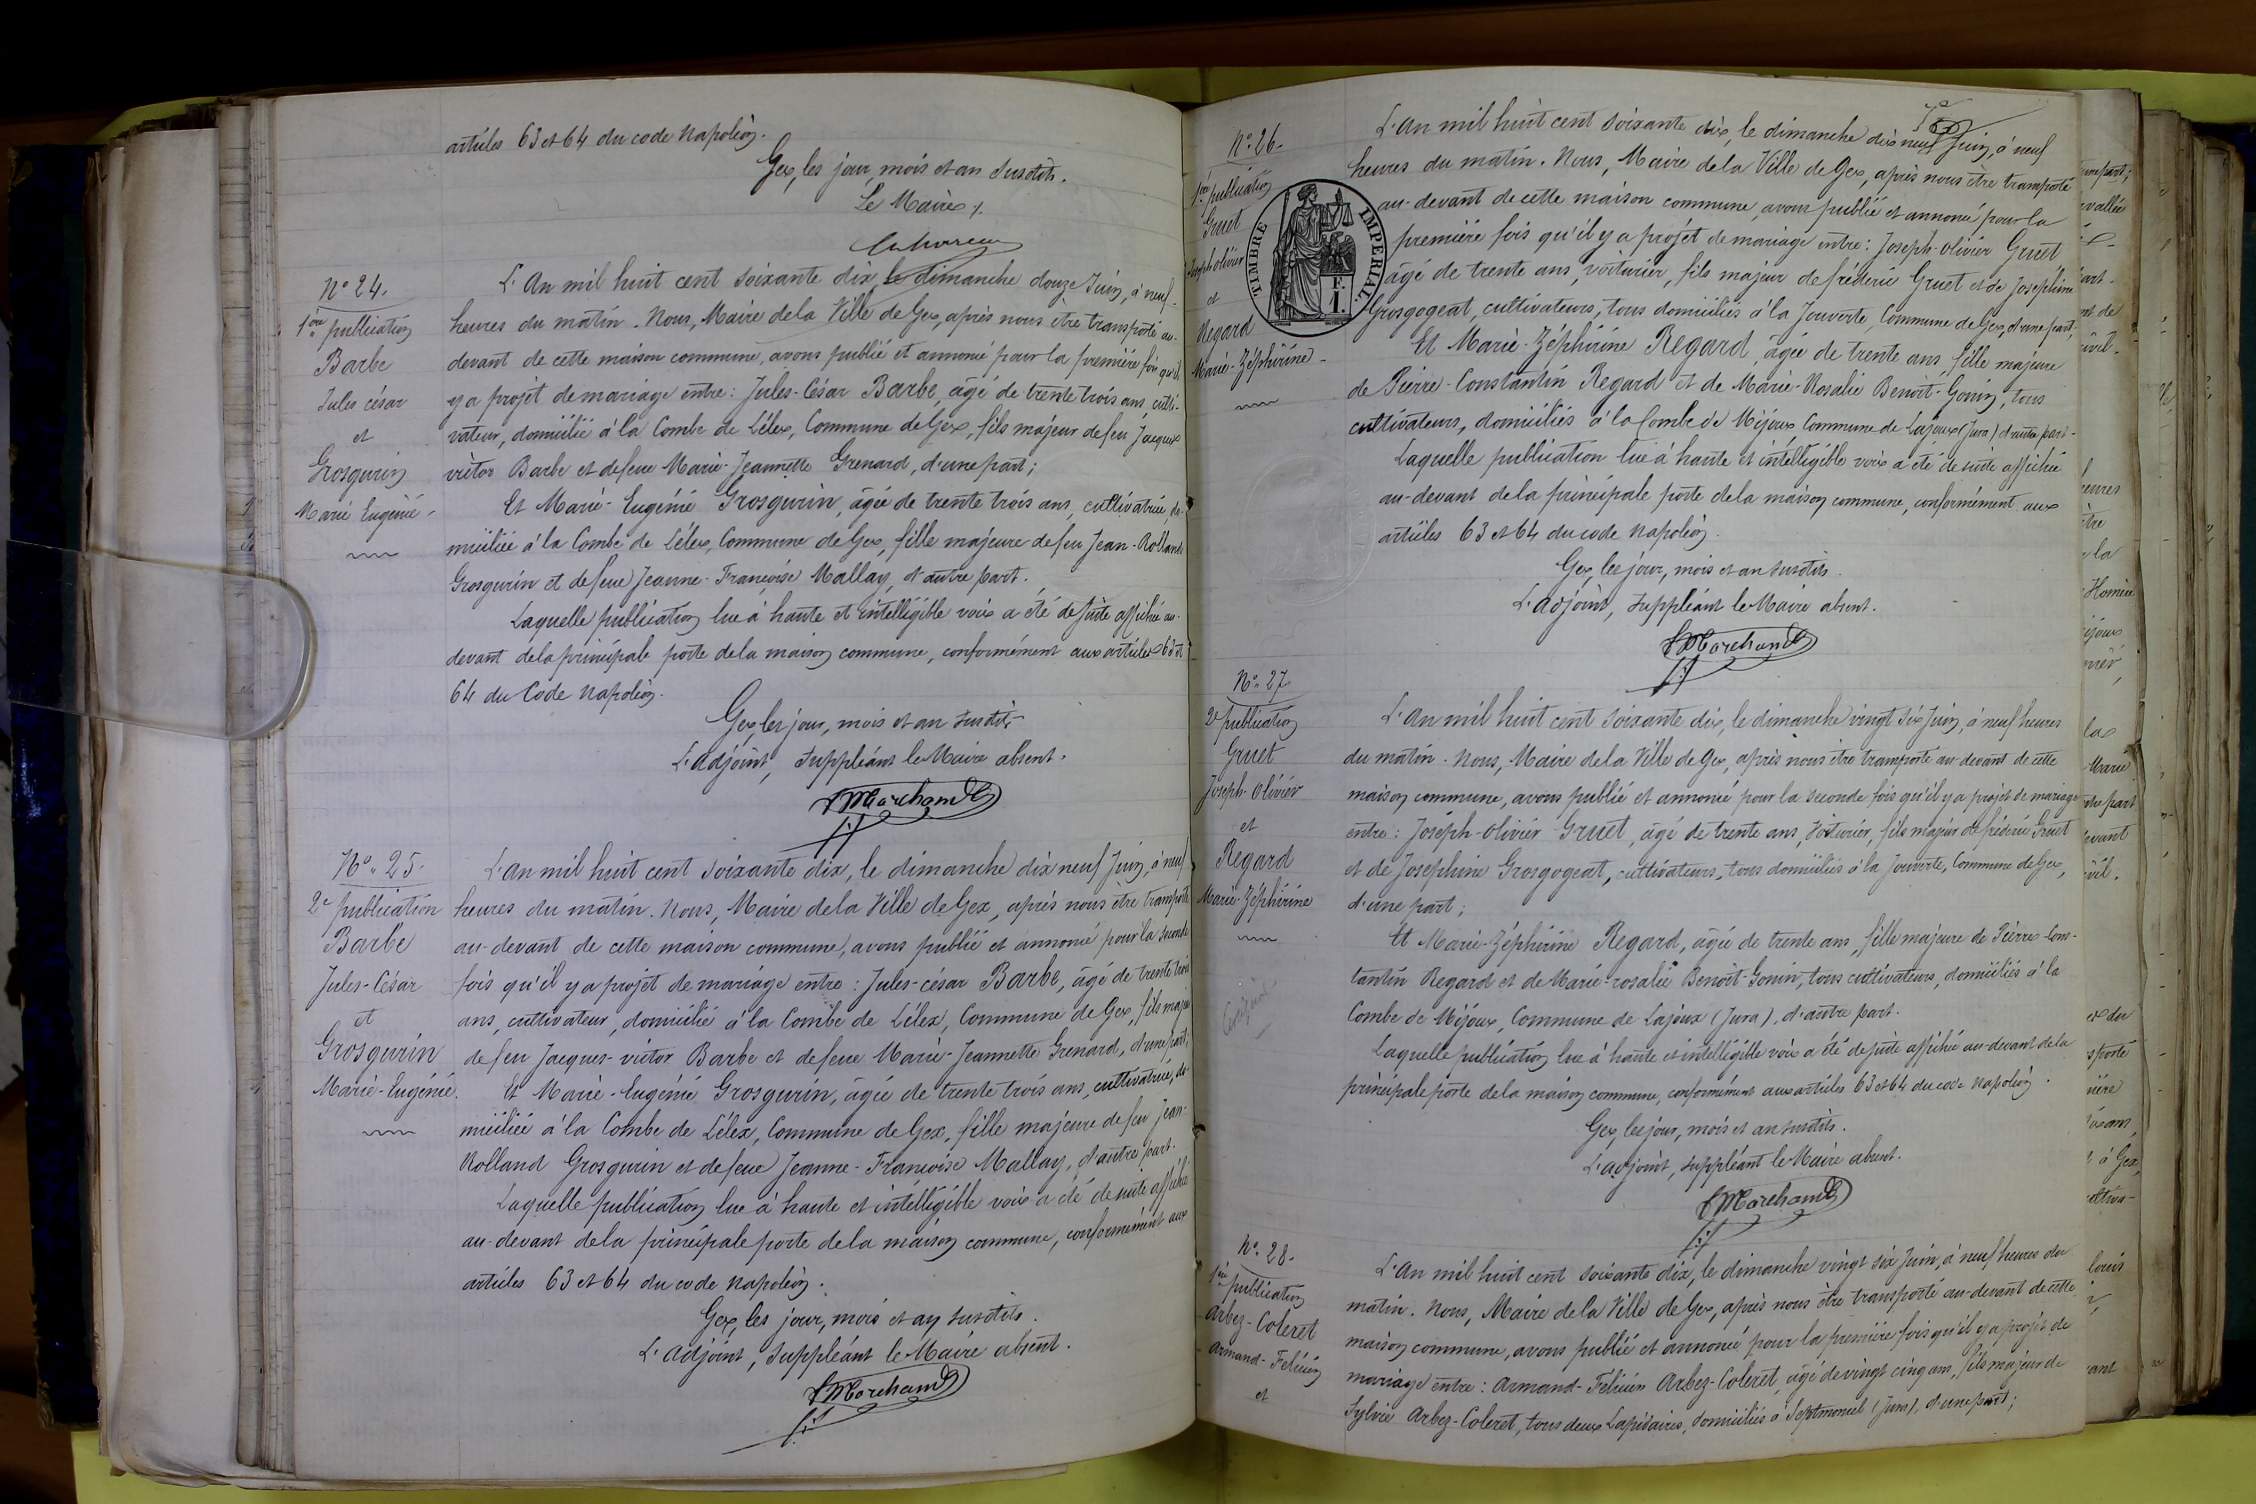 articles 63 et 64 du code Napoléon.
Gex, les jour, mois et an susdits.
Le Maire
N° 24.
1ère publication
Barbe
Jules César
et
Grosgurin
Marie Eugénie
L'An mil huit cent soixante dix, le dimanche douze Juin, à neuf
heures du matin. Nous, Maire de la Ville de Gex, après nous être transporté au-
devant de cette maison commune, avons publié et annoncé pour la première fois qu'il
y a projet de mariage entre : Jules-César Barbe, âgé de trente trois ans, culti-
vateur, domicilié à la Combe de Lélex, Commune de Gex, fils majeur de feu Jacques
victor Barbe et de feue Marie-Jeannette Grenard, d'une part ;
Et Marie-Eugénie Grosgurin, âgée de trente trois ans, cultivatrice, do-
miciliée à la Combe de Lélex, Commune de Gex, fille majeure de feu Jean-Rolland
Grosgurin et de feue Jeanne-Françoise Mallay, d'autre part.
Laquelle publication lue à haute et intelligible voix a été de suite affichée au-
devant de la principale porte de la maison commune, conformément aux articles 63 et
64 du Code Napoléon.
Gex, les jour, mois et an susdits
L'adjoint, suppléant le Maire absent.
Marchand
N° 25.
2e publication
Barbe
Jules-César
et
Grosgurin
Marie-Eugénie.
L'an mil huit cent soixante dix, le dimanche dix neuf Juin, à neuf
heures du matin. Nous, Maire de la Ville de Gex, après nous être transporté
au-devant de cette maison commune, avons publié et annoncé pour la seconde
fois qu'il y a projet de mariage entre : Jules-César Barbe, âgé de trente trois
ans, cultivateur, domicilié à la Combe de Lélex, Commune de Gex, fils majeur
de feu Jacques-victor Barbe et de feue Marie-Jeannette Grenard, d'une part ;
Et Marie-Eugénie Grosgurin, âgée de trente trois ans, cultivatrice, do-
miciliée à la Combe de Lélex, Commune de Gex, fille majeure de feu Jean-
Rolland Grosgurin et de feue Jeanne-Françoise Mallay, d'autre part.
Laquelle publication lue à haute et intelligible voix a été de suite affichée
au-devant de la principale porte de la maison commune, conformément aux
articles 63 et 64 du code Napoléon.
Gex, les jour, mois et an susdits.
L'adjoint, suppléant le Maire absent.
Marchand
N° 26.
1ère publication
Gruet
Joseph olivier
et
Regard
Marie-Zéphirine
TIMBRE IMPERIAL.
L'An mil huit cent soixante dix, le dimanche dix neuf Juin, à neuf
heures du matin. Nous, Maire de la Ville de Gex, après nous être transporté
au-devant de cette maison commune, avons publié et annoncé pour la
première fois qu'il y a projet de mariage entre : Joseph-olivier Gruet
âgé de trente ans, voiturier, fils majeur de frédéric Gruet et de Joséphine
Grosgogeat, cultivateurs, tous domiciliés à la Jouverte, Commune de Gex, d'une part,
Et Marie-Zéphirine Regard, âgée de trente ans, fille majeure
de Pierre-Constantin Regard et de Marie-Rosalie Benoit-Gonin, tous
cultivateurs, domiciliés à la Combe de Mijoux Commune de Lajoux (Jura) d'autre part.
Laquelle publication lue à haute et intelligible voix a été de suite affichée
au-devant de la principale porte de la maison commune, conformément aux
articles 63 et 64 du code Napoléon.
Gex, les jour, mois et an susdits.
L'adjoint, suppléant le Maire absent.
Marchand
N° 27.
2e publication
Gruet
Joseph-Olivier
et
Regard
Marie-Zéphirine
L'An mil huit cent soixante dix, le dimanche vingt six Juin, à neuf heures
du matin. Nous, Maire de la Ville de Gex, après nous être transporté au-devant de cette
maison commune, avons publié et annoncé pour la seconde fois qu'il y a projet de mariage
entre : Joseph-olivier Gruet, âgé de trente ans, Voiturier, fils majeur de frédéric Gruet
et de Josephine Grosgogeat, cultivateurs, tous domiciliés à la Jouverte, Commune de Gex,
d'une part ;
Et Marie-Zéphirine Regard, âgée de trente ans, fille majeure de Pierre-Cons-
tantin Regard et de Marie-rosalie Benoit-Gonin, tous cultivateurs, domiciliés à la
Combe de Mijoux, Commune de Lajoux (Jura), d'autre part.
Laquelle publication lue à haute et intelligible voix a été de suite affichée au-devant de la
principale porte de la maison commune, conformément aux articles 63 et 64 du code Napoléon.
Gex, les jour, mois et an susdits.
L'adjoint, suppléant le Maire absent.
Marchand
N° 28.
1ère publication
Arbez-Coleret
Armand-Félicien
et
L'An mil huit cent soixante dix, le dimanche vingt six Juin, à neuf heures du
matin. Nous, Maire de la Ville de Gex, après nous être transporté au-devant de cette
maison commune, avons publié et annoncé pour la première fois qu'il y a projet de
mariage entre : Armand-Félicien Arbez-Coleret, âgé de vingt cinq ans, fils majeur de
Sylvie Arbez-Coleret, tous deux Lapidaires, domiciliés à Septmoncel (Jura), d'une part ;